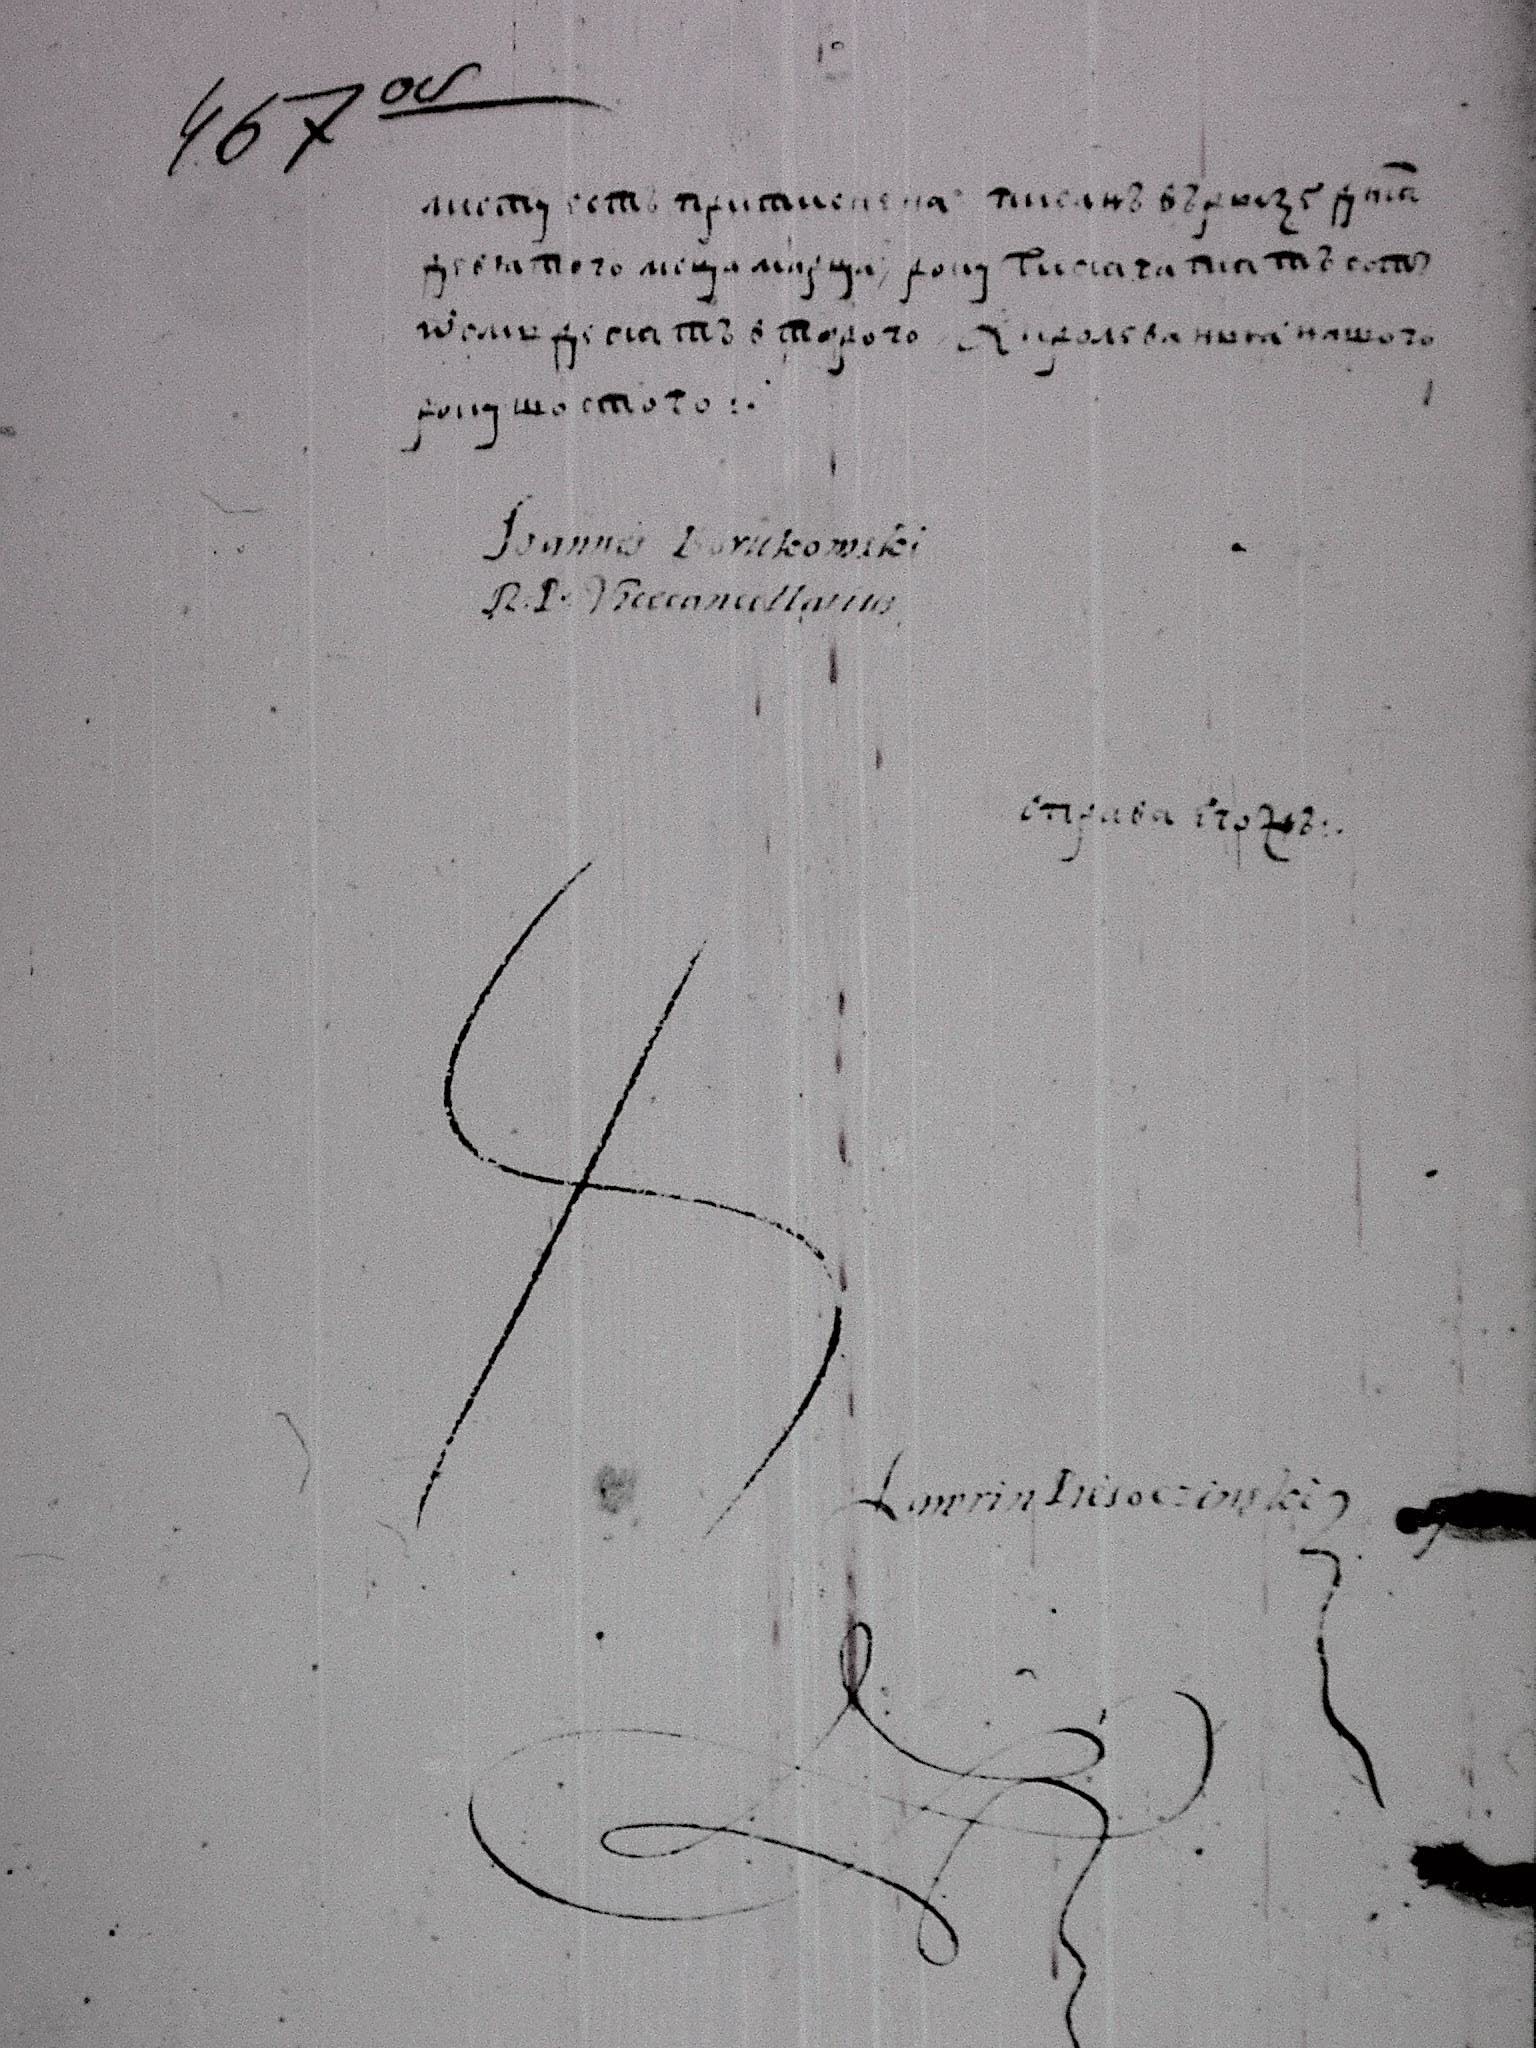 467 ос
листу естъ притиснена писанъ въ рызе дня
девятого мсца марца року тисеча пятъсотъ
ѡсмъдесятъ второго А кролеванья нашого
року шостого :.
Joannes Borukowski
R. P. Vicecancellarius
справа его ∴
Lawrin Piesoczinski